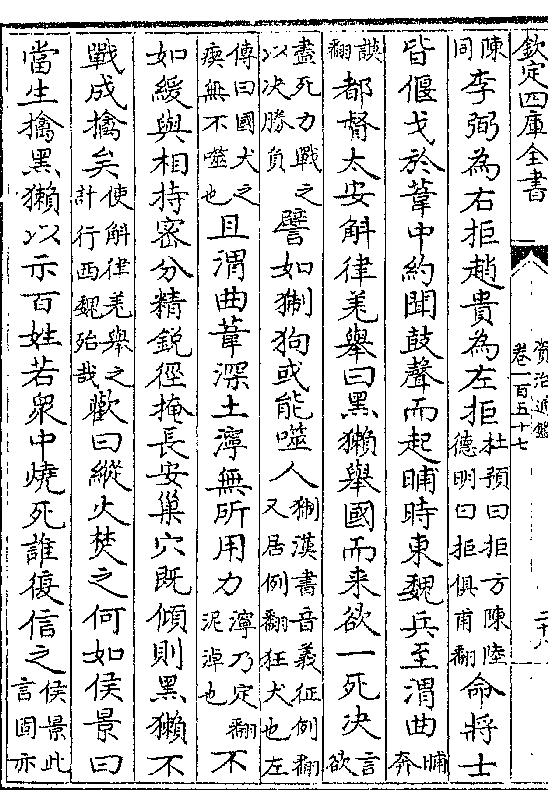 欽定四庫全書
資治通鑑
卷一百五十七
二十八
陳同李弼為右拒趙貴為左拒杜預曰拒方陳陸德明曰拒俱甫翻命將士
皆偃戈於葦中約聞鼓聲而起晡時東魏兵至渭曲晡奔
謨翻都督太安斛律羌舉曰黑獺舉國而来欲一死决言欲
盡死力戰之以决勝負譬如猘狗或能噬人猘漢書音義征例翻又居例翻狂犬也左
傳曰國犬之瘈無不噬也且渭曲葦深土濘無所用力濘乃定翻泥淖也不
如緩與相持密分精鋭徑掩長安巢穴既傾則黑獺不
戰成擒矣使斛律羌舉之計行西魏殆哉歡曰縱火焚之何如侯景曰
當生擒黑獺以示百姓若衆中燒死誰復信之侯景此言固亦